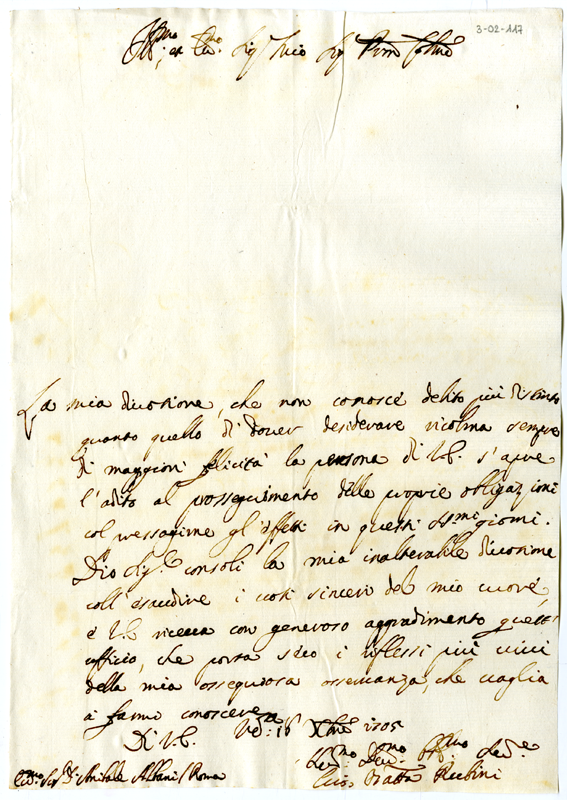 3-02-117
Ill.mo et Ecc.mo Sig.r mio Sig.r Pron Colmo
La mia divotione, che non conosce debito più distinto
quanto quello di dover desiderare ricolma sempre
di maggiori felicità la persona di V.E. s'apre
l'adito al proseguimento delle proprie obligazioni
col presagirne gl'effetti in questi SS.mi giorni.
Dio Sig.r consoli la mia inalterabile divotione
coll'esaudire i voti sinceri del mio cuore,
e V.E. riceva con generoso aggradimento quest'
ufficio, che porta seco i riflessi più vivi
della mia ossequiosa osservanza, che vaglia
a farmi conoscere
Di V.E. Ven: 16 Xbre 1705
Dev.mo Obb.mo
Gio: Batta Rubini
Sig.r D. Anibale Albani / Roma